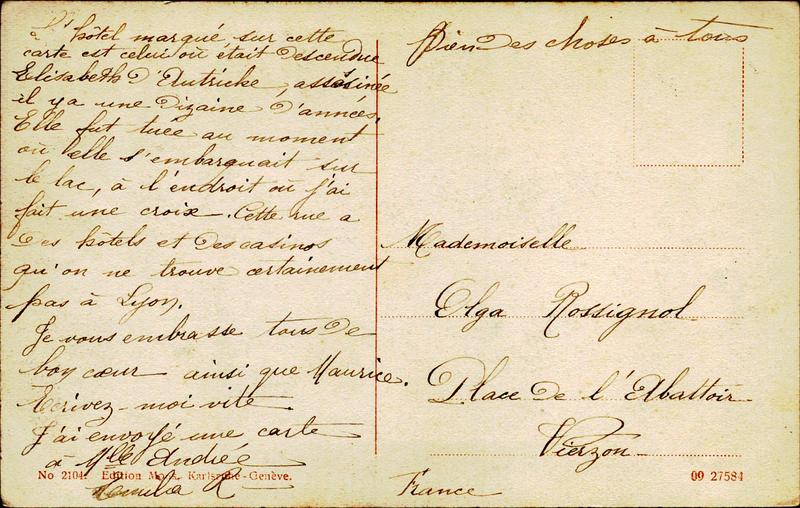 L'hôtel marqué sur cette
carte est celui où était descendue
Elisabeth d'Autriche, assassinée
il y a une dizaine d'années.
Elle fut tuée au moment
où elle s'embarquait sur
le lac, à l'endroit où j'ai
fait une croix. Cette rue a
des hôtels et des casinos
qu'on ne trouve certainement
pas à Lyon.
Je vous embrasse tous de
bon cœur ainsi que Maurice.
Ecrivez-moi vite
J'ai envoyé une carte
à Mlle Andrée
R
No 2104. Edition Karlsruhe-Genève.
Bien des choses à tous
Mademoiselle
Olga Rossignol
Place de l'Abattoir
Vierzon
France
09 27584